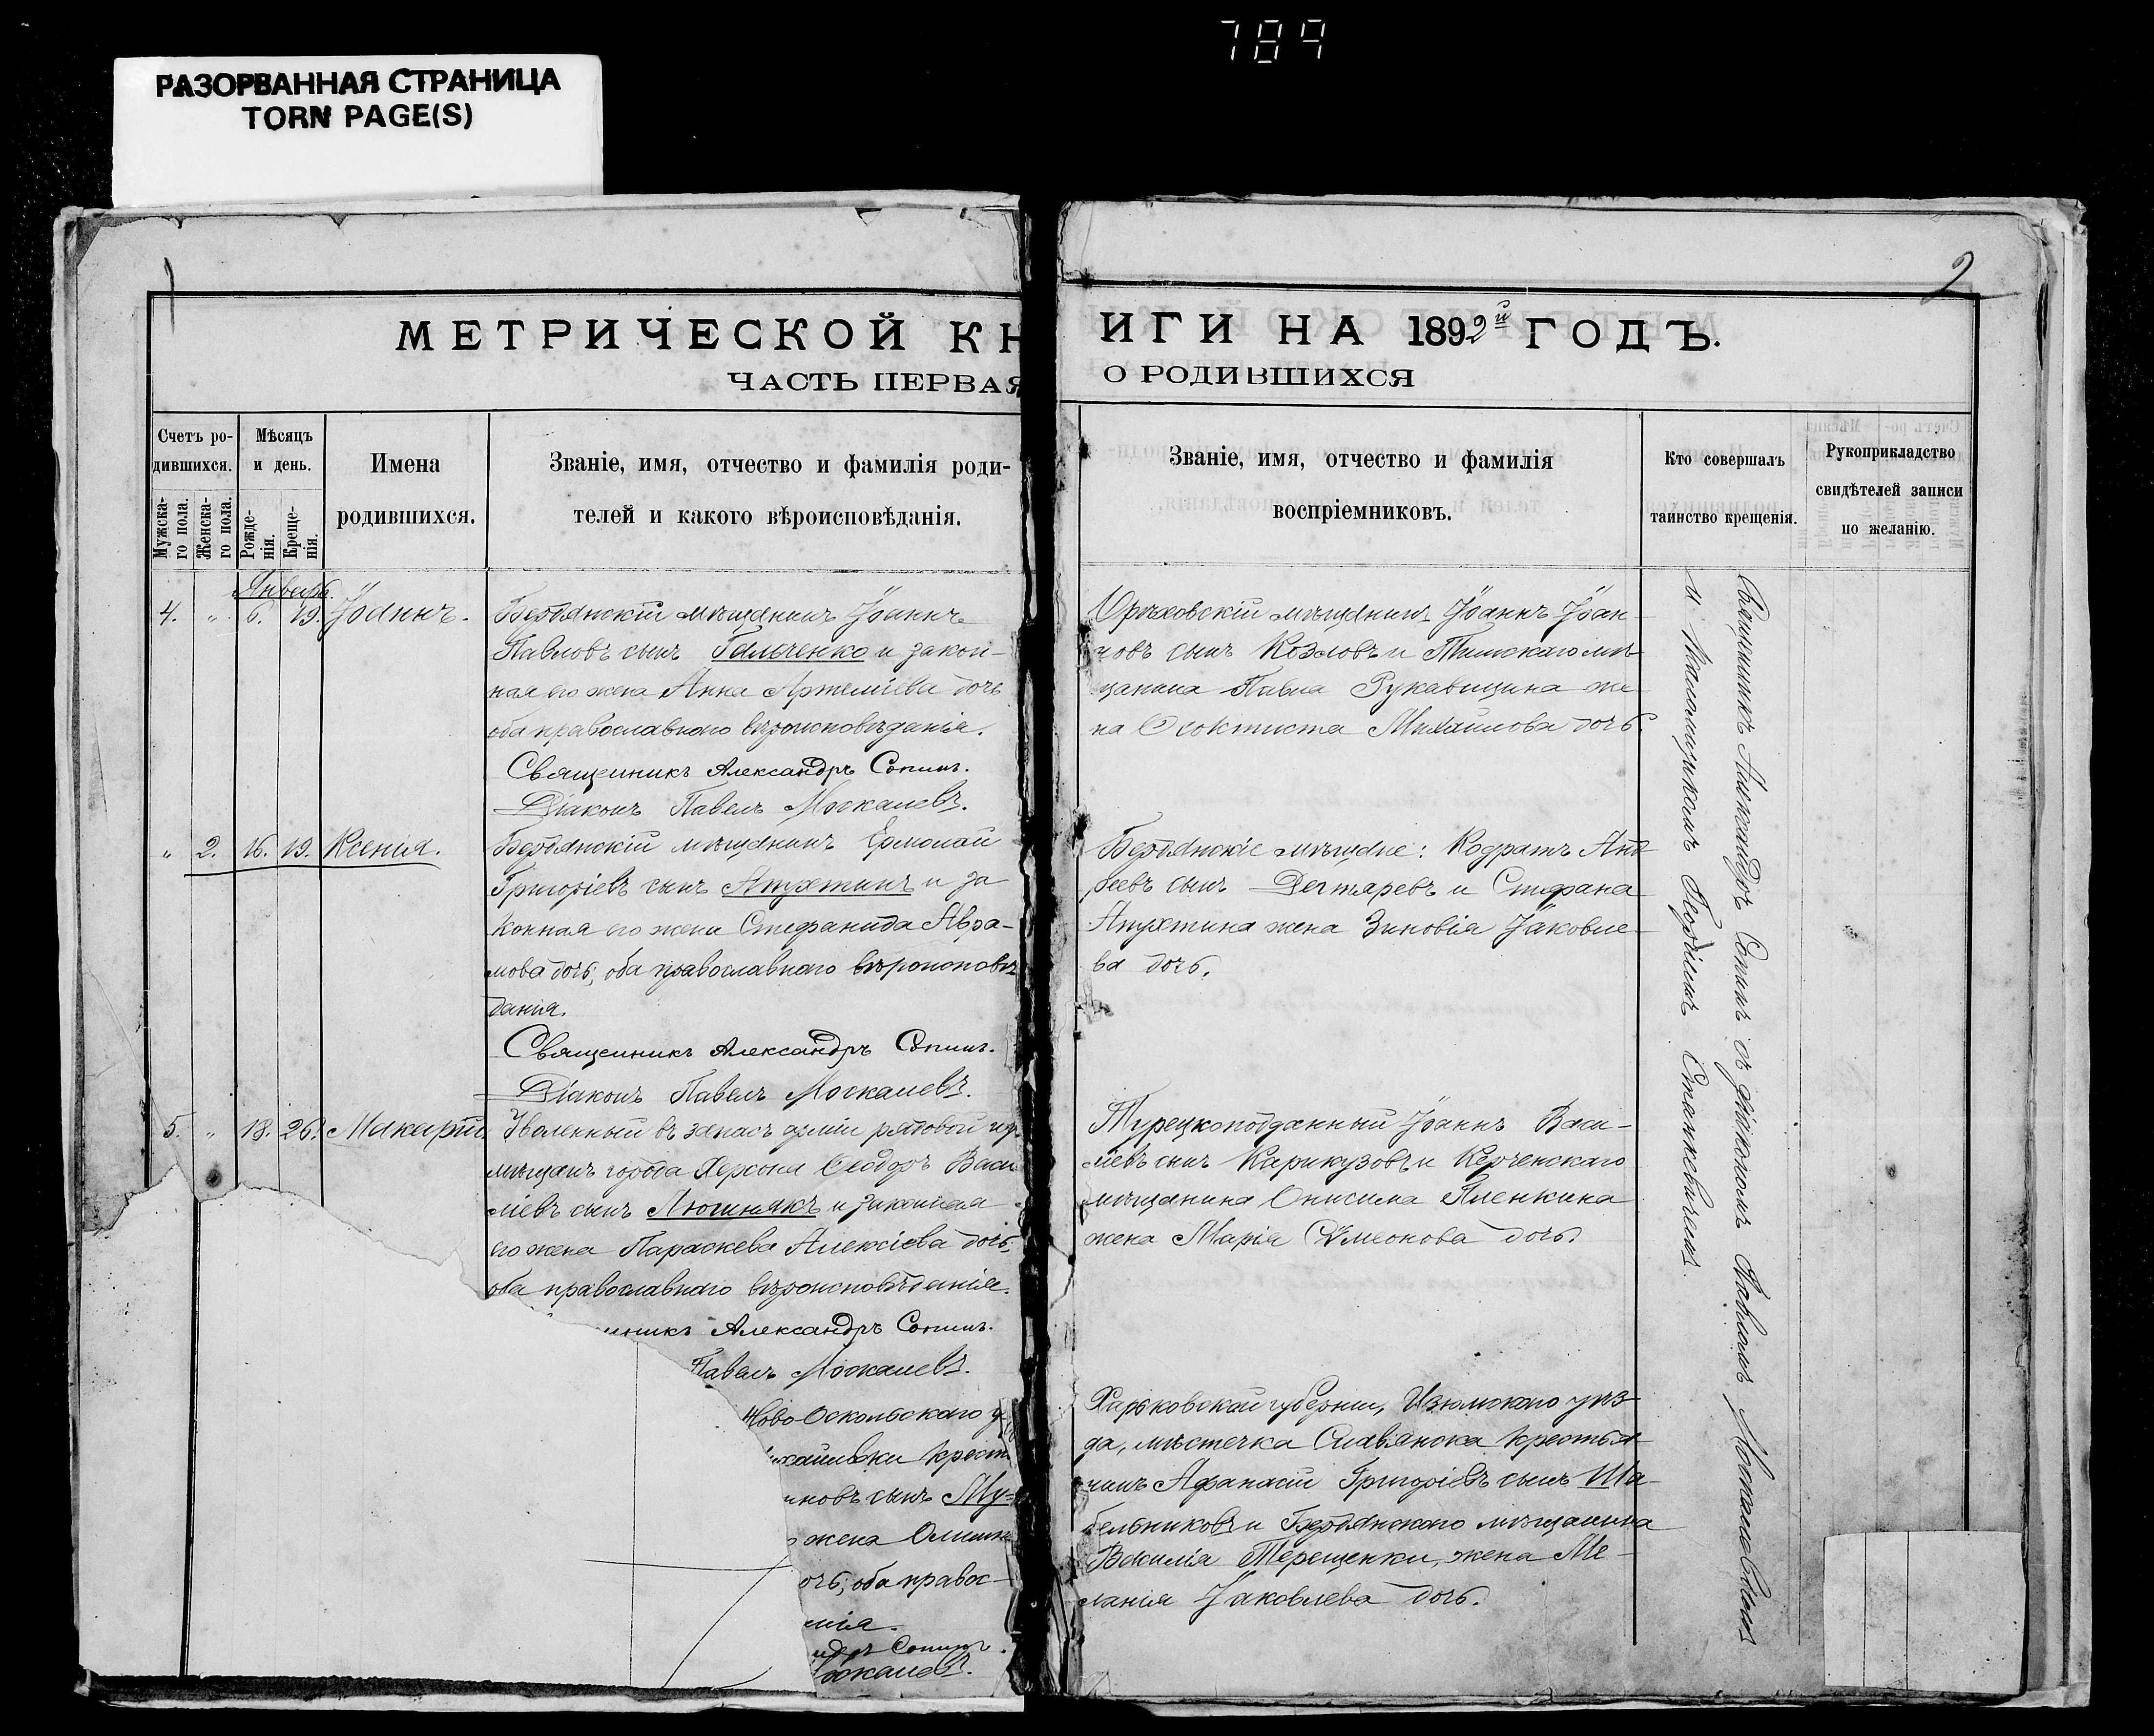 789
РАЗОРВАННАЯ СТРАНИЦА
TORN PAGE(S)
2
МЕТРИЧЕСКОЙ КН
ИГИ НА 1892й ГОДЪ.
ЧАСТЬ ПЕРВАЯ
О РОДИВШИХСЯ
Счетъ ро-
дившихся.
Мужска-
го пола.
Женска-
го пола.
Мѣсяцъ
и день.
Рожде-
нія.
Креще-
нія.
Имена
родившихся.
Званіе, имя, отчество и фамилія роди-
телей и какого вѣроисповѣданія.
Званіе, имя, отчество и фамилія
воспріемниковъ.
Кто совершалъ
таинство крещенія.
Рукоприкладство
свидѣтелей записи
по желанію.
Январь
4. " 6. 19. Іоаннъ.
Бердянскій мѣщанинъ Іоаннъ
Павловъ сынъ Гальченко и закон-
ная его жена Анна Артеміева дочь
оба православнаго вѣроисповѣданія.
Священникъ Александръ Сопинъ.
Діаконъ Павелъ Москалевъ.
Орѣховскій мѣщанинъ Іоаннъ Іоан-
новъ сынъ Козловъ и Тимскаго мѣ-
щанина Павла Рукавицина же
на Ѳеоктиста Михайлова дочь.
" 2. 16. 19. Ксенія.
Бердянскій мѣщанинъ Ермолай
Григоріевъ сынъ Апухтинъ и за
конная его жена Стефанида Авра-
мова дочь, оба православнаго вѣроисповѣ
данія.
Священникъ Александръ Сопинъ.
Діаконъ Павелъ Москалевъ.
Бердянскіе мѣщане: Кодратъ Анд
реевъ сынъ Дегтяревъ и Стефана
Апухтина жена Зиновія Іаковле-
ва дочь.
5. " 18. 26. Макарій
Уволенный въ запасъ арміи рядовой изъ
мѣщанъ города Херсона Ѳеодоръ Васи
ліевъ сынъ Люшнякъ и законная
его жена Параскева Алексіева дочь,
оба православнаго вѣроисповѣданія.
никъ Александръ Сопинъ.
Павелъ Москалевъ.
Турецкоподданный Іоаннъ Васи-
ліевъ сынъ Карикузовъ и Керченскаго
мѣщанина Онисима Пленкина
жена Марія Сѵмеонова дочь.
Ново-Оскольскаго у-
хайловки крест
новъ сынъ Му-
жена Олимп
очь, оба правос-
нія.
ндръ Сопинъ.
Москалевъ.
Харьковской губерніи, Изюмскаго уѣз-
да, мѣстечка Славянска крестья-
нинъ Афанасій Григоріевъ сынъ Ша-
бельниковъ и Бердянскаго мѣщанина
Василія Терещенки, жена Ме-
ланія Іаковлева дочь.
Священникъ Александръ Сопинъ съ діакономъ Павломъ Москалевымъ
и псаломщикомъ Георгіемъ Станкевичемъ.